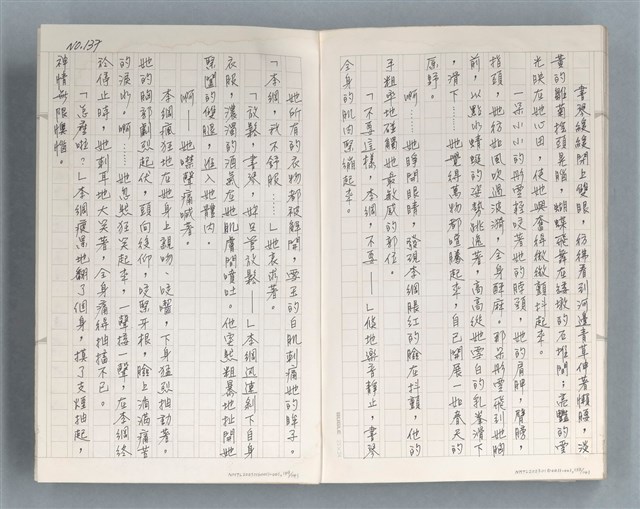 書琴緩緩閉上雙眼，彷彿看到河邊青草伸著懶腰，淡
黃的雛菊搖頭晃腦，蝴蝶飛舞在磚墩的石堆間；亮豔的雲
光映在她心田，使她興奮得微微顫抖起來。
一朵小小的彤雲輕咬著她的脖頸，她的肩胛，臂膀，
指頭，她彷如風吹過波濤，全身酥麻。那朵彤雲飛到她胸
前，以點水蜻蜓的姿勢跳逗著，高高從她雪白的乳峯滑下
，滑下——她覺得萬物都喧騰起來，自己開展一如春天的
原野。
啊……她睜開眼睛，發現本綱脹紅的臉在抖顫，他的
手粗率地碰觸她最敏感的部位。
「不要這樣，本綱，不要——」倏地樂音靜止，書琴
全身的肌肉緊繃起來。
NO.137
她所有的衣物都被解開，雪玉的白肌刺痛她的眸子。
「本綱，我不舒服……」她哀求著。
「放鬆，書琴，妳只管放鬆——」本綱迅速剝下自身
衣服，濃濁的酒氣在她肌膚間噴吐。他突然粗暴地扯開她
緊閉的雙腿，進入她體內。
啊——她嘶聲痛喊著。
本綱瘋狂地在她身上親吻、咬嚙，下身猛烈抽動著。
她的胸部劇烈起伏，頭向後仰，咬緊牙根，臉上滴滿痛苦
的淚水。啊……她忽然狂笑起來，一聲接一聲，在本綱終
於停止時，她刺耳地大笑著，全身痛得抽搐不已。
「怎麼啦？」本綱疲累地翻了個身，摸了支煙抽起，
神情無限懊惱。